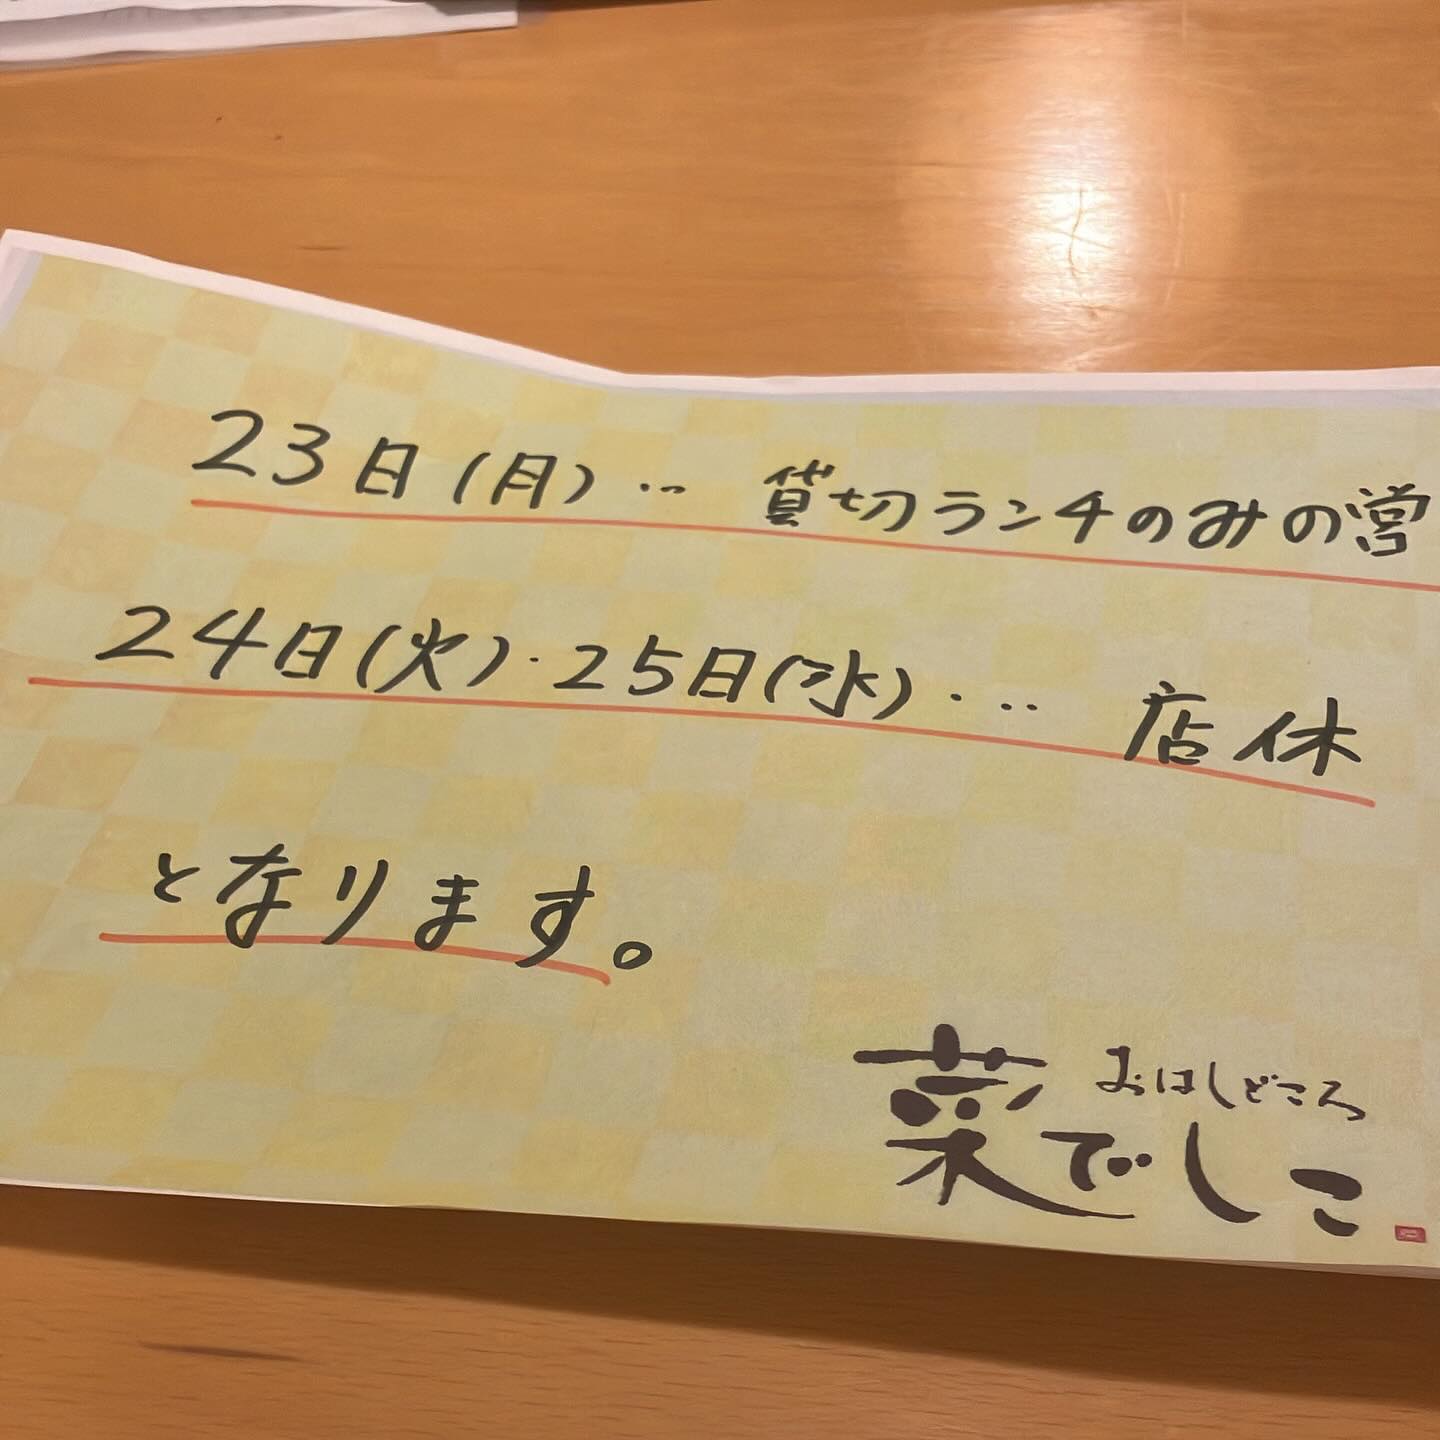 23日(月)… 貸切ランチのみの営
24日(火)・25日(水)・… 店休
となります。
おはしどころ
菜でしこ